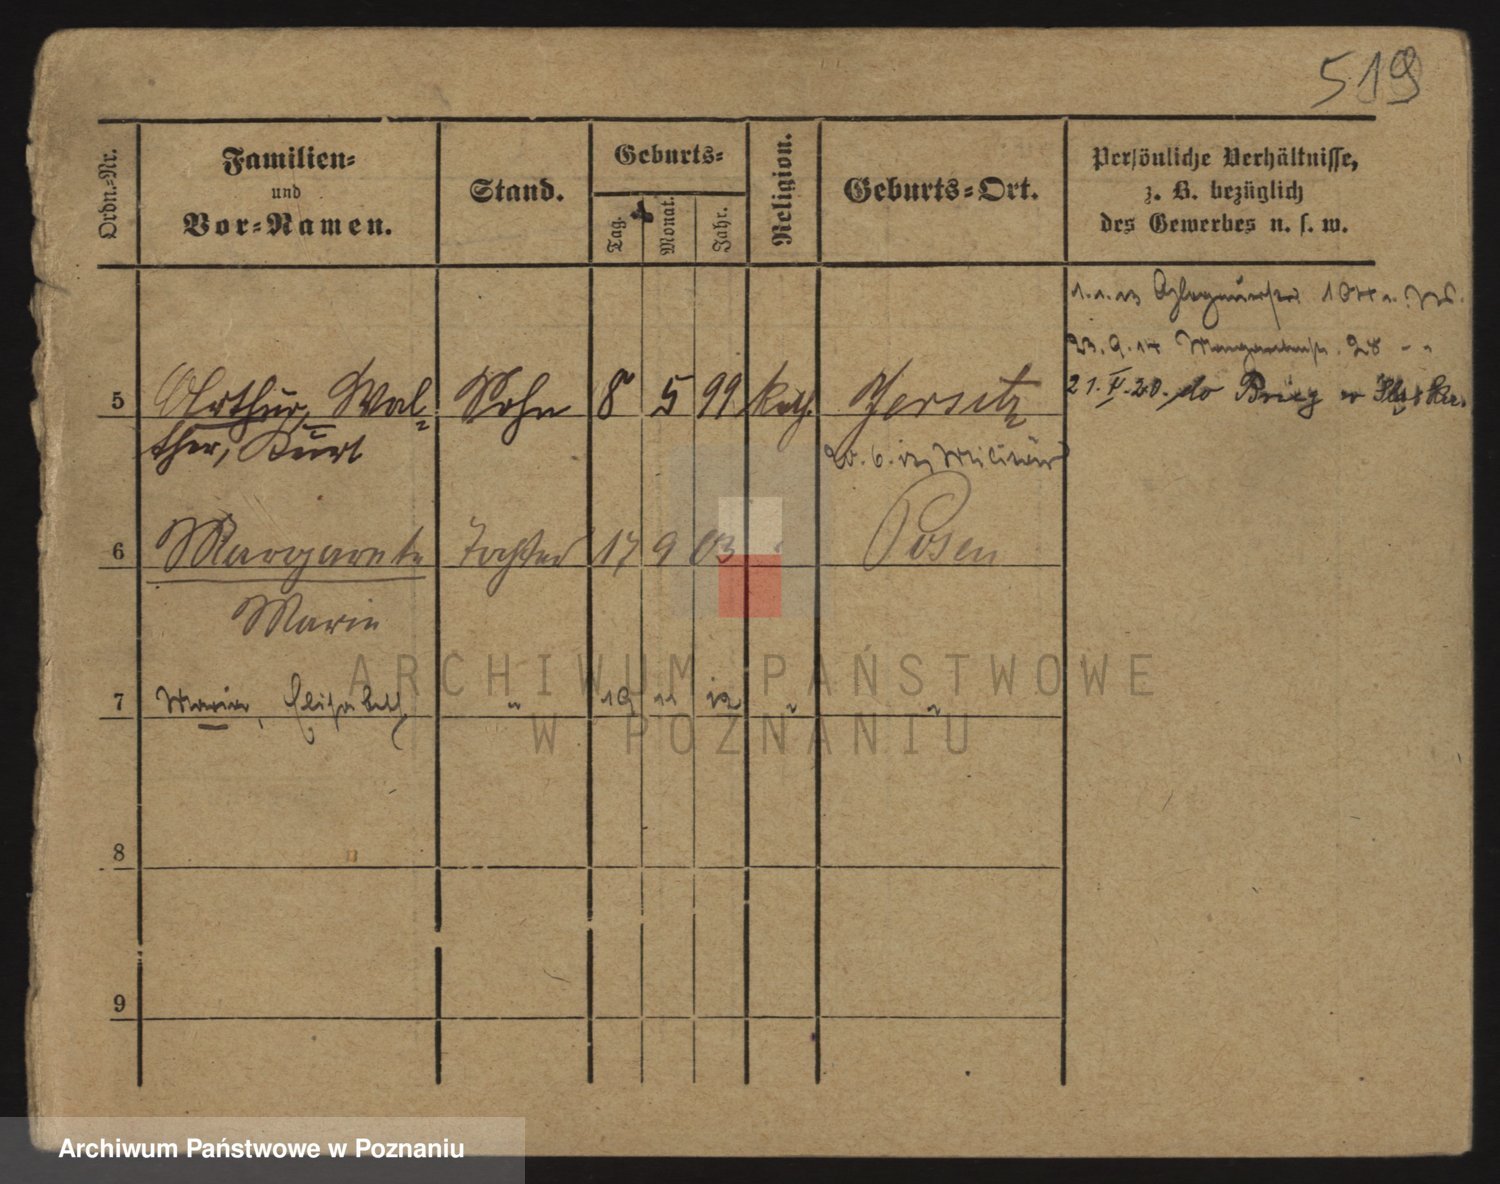 519
Ordn.-Nr.
Familien-
und
Vor-Namen.
Stand.
Geburts-
Tag.
Monat.
Jahr.
Religion.
Geburts-Ort.
Persönliche Verhältnisse,
z. B. bezüglich
des Gewerbes u. s. w.
23. 9. 14 28
21. V. 20. do Brieg
5 Arthur, Wal- Sohn 8 5 99 kath. Jersitz
ther, Kurt
Militär
6 Margarete Tochter 17 9 03 " Posen
Marie
7 Maria, Elisabeth " 19 11 12 " "
8
9
ARCHIWUM PAŃSTWOWE
W POZNANIU
Archiwum Państwowe w Poznaniu